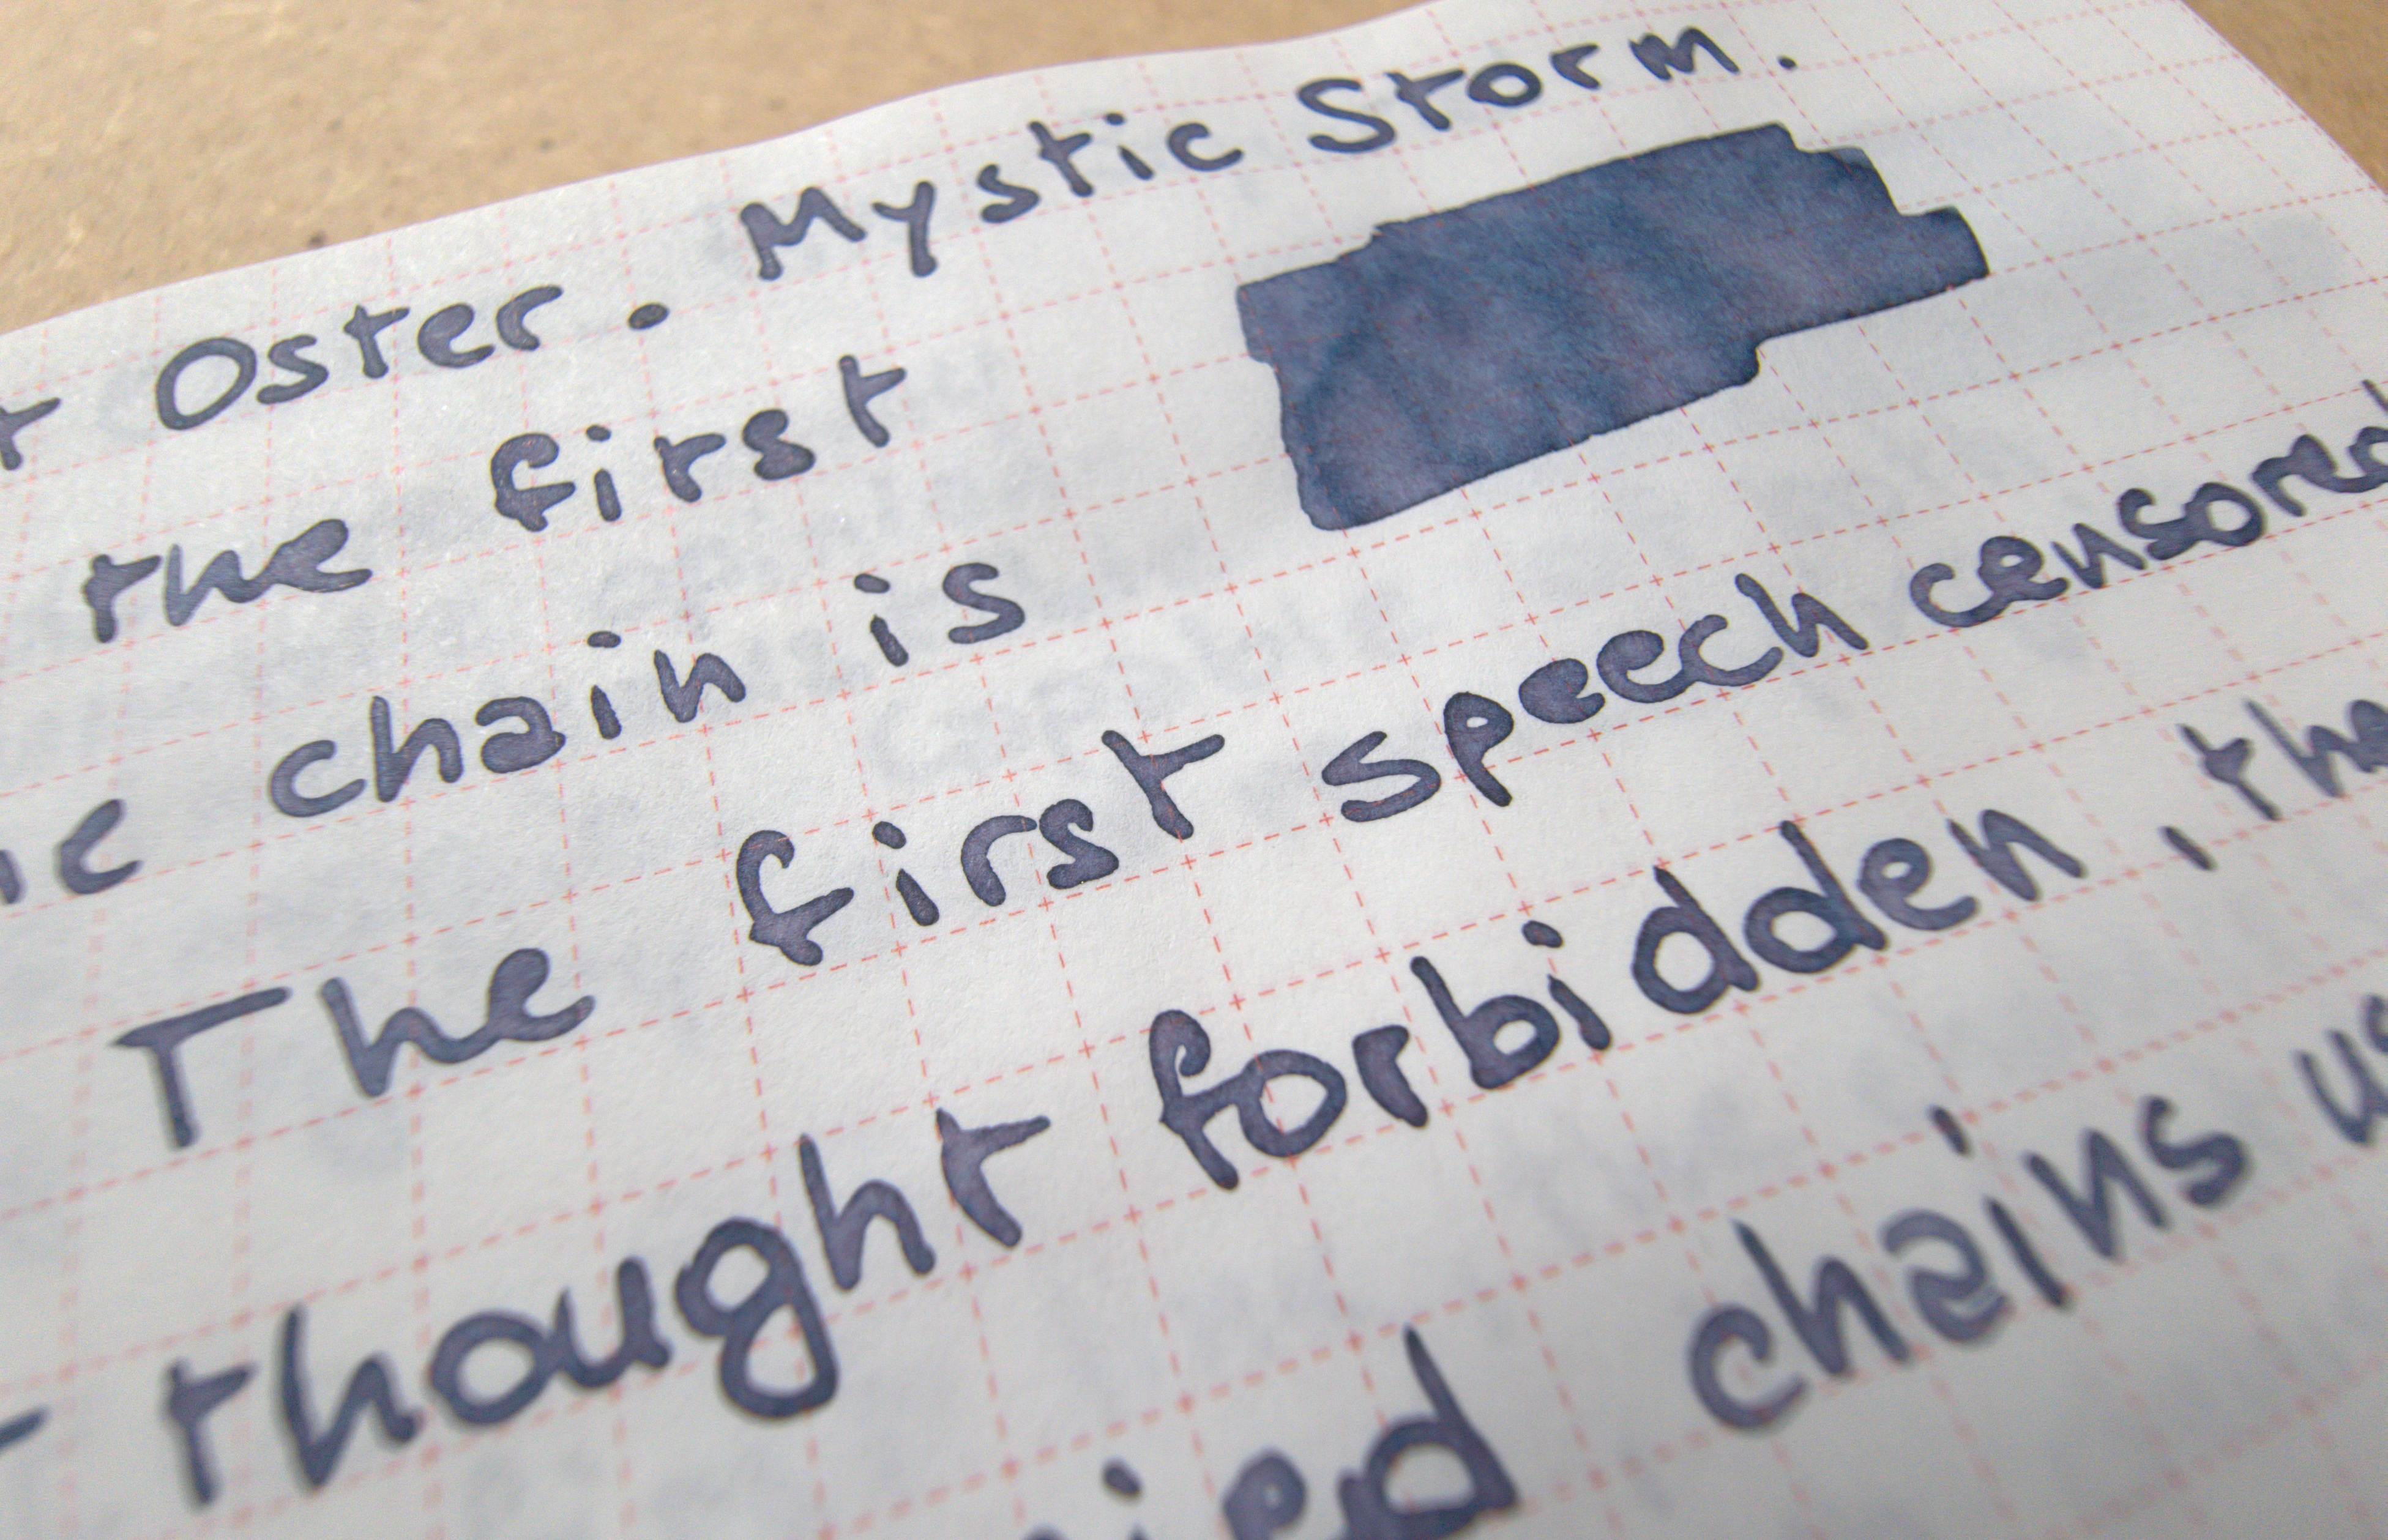 Oster. Mystic Storm.
the first
chain is
The first speech censored
thought forbidden, the
chains us